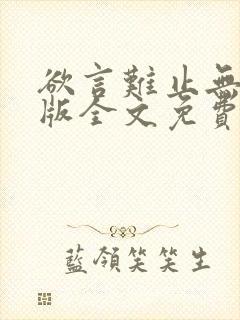 欲言難止無
版全文免費
藍領笑笑生